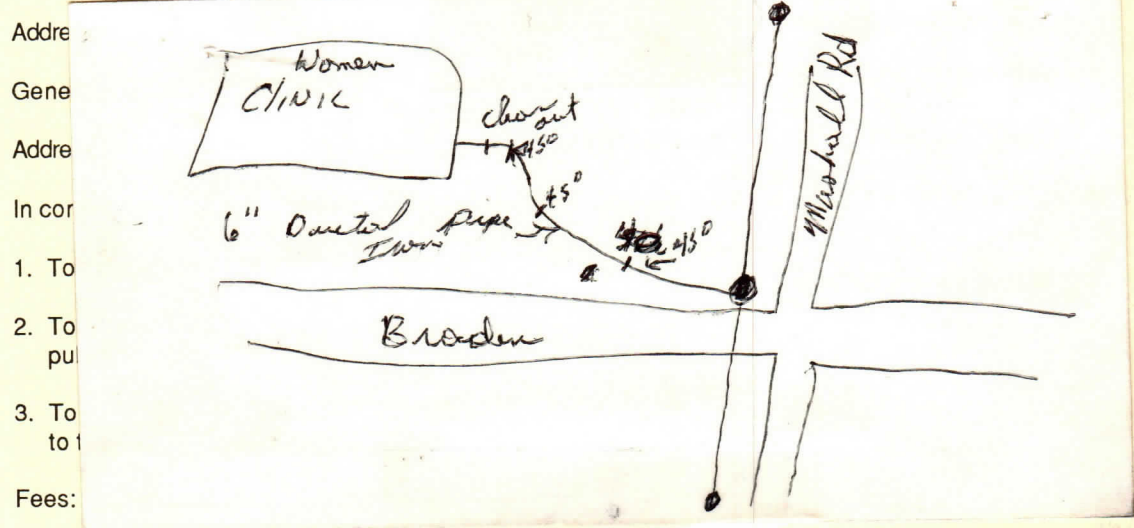 Addre
Gene
Addre
In cor
1. To
2. To
pul
3. To
to t
Fees:
Women
CLINIC
Clean out
45°
45°
6" Ductal Iron pipe
45°
Braden
Marshall Rd